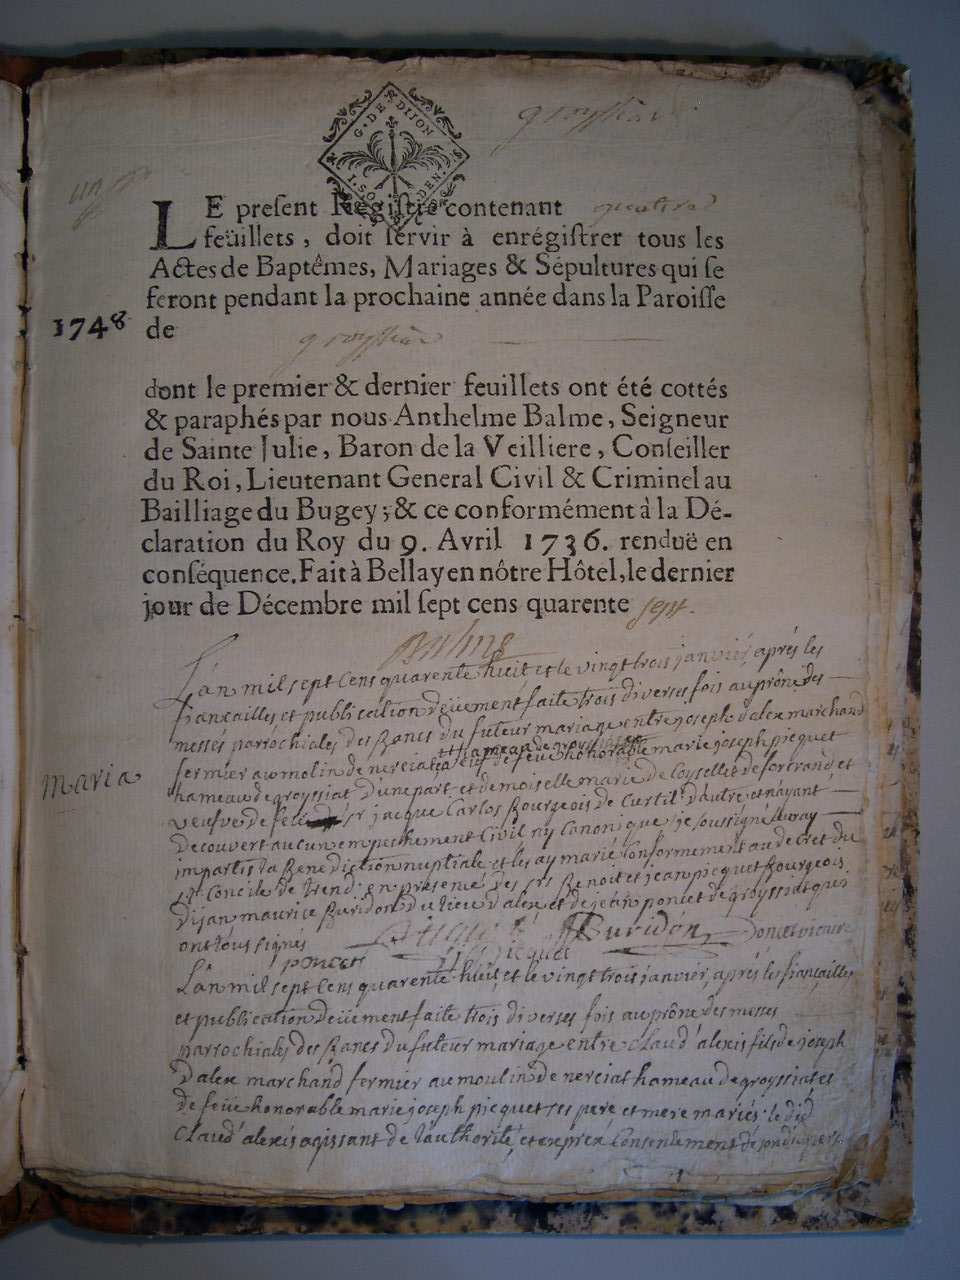 G. DE DIJON
I. SO DEN.
groissiat
LE present Registre contenant
feüillets, doit servir à enrégistrer tous les
Actes de Baptêmes, Mariages & Sépultures qui se
feront pendant la prochaine année dans la Paroisse
1748 de groissiat
dont le premier & dernier feuillets ont été cottés
& paraphés par nous Anthelme Balme, Seigneur
de Sainte Julie, Baron de la Veilliere, Conseiller
du Roi, Lieutenant General Civil & Criminel au
Bailliage du Bugey; & ce conformément à la Dé-
claration du Roy du 9. Avril 1736. renduë en
conséquence. Fait à Bellay en nôtre Hôtel, le dernier
jour de Décembre mil sept cens quarente sept.
Balme
L'an mil sept cens quarente huit et le vingt trois janvier, après les
fiancailles et publication deüement faite trois diverses fois au prône des
messes parrochiales des Bancs du futeur mariage entre joseph d'alex marchand
fermier au molin de nerciat veuf de feüe honorable marie joseph picquet
hameau de groyssiat
maria hameau de groyssiat d'une part et demoiselle marie de
veufve de feu sr jacque Carlos Bourgeois de Curtil d'autre et n'ayant
decouvert aucun empechement Civil ny Canonique, je soussigné
impartis la Benediction nuptiale et les ay marié conformement au decret du
St Concile de trend en presence des srs Benoit et jean picquet Bourgeois
d'ijan maurice Buridon du lieu d'alex et de jean poncet de groyssiat qui
ont tous signés
poncet picquet Buridon
L'an mil sept cens quarente huit, et le vingt trois janvier, après les fiançailles
et publication deüement faite trois diverses fois au prône des messes
parrochiales des Bancs du futeur mariage entre Claud' alexis fils de joseph
d'alex marchand fermier au moulin de nerciat hameau de groyssiat, et
de feüe honorable marie joseph picquet ses pere et mere mariés. le dit
Claud' alexis agissant de l'authorité, et exprex consentement de son dit pere